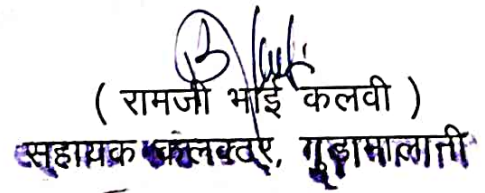 ( रामजी भाई कलवी )
सहायक कलक्टर, गुडामालानी